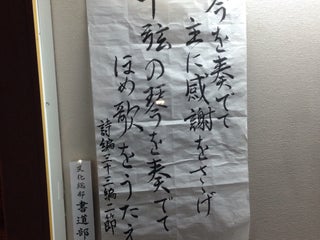 琴を奏でて
主に感謝をささげ
十弦の琴を奏でて
ほめ歌をうたえ
詩編三十三編二節
文化総部 書道部